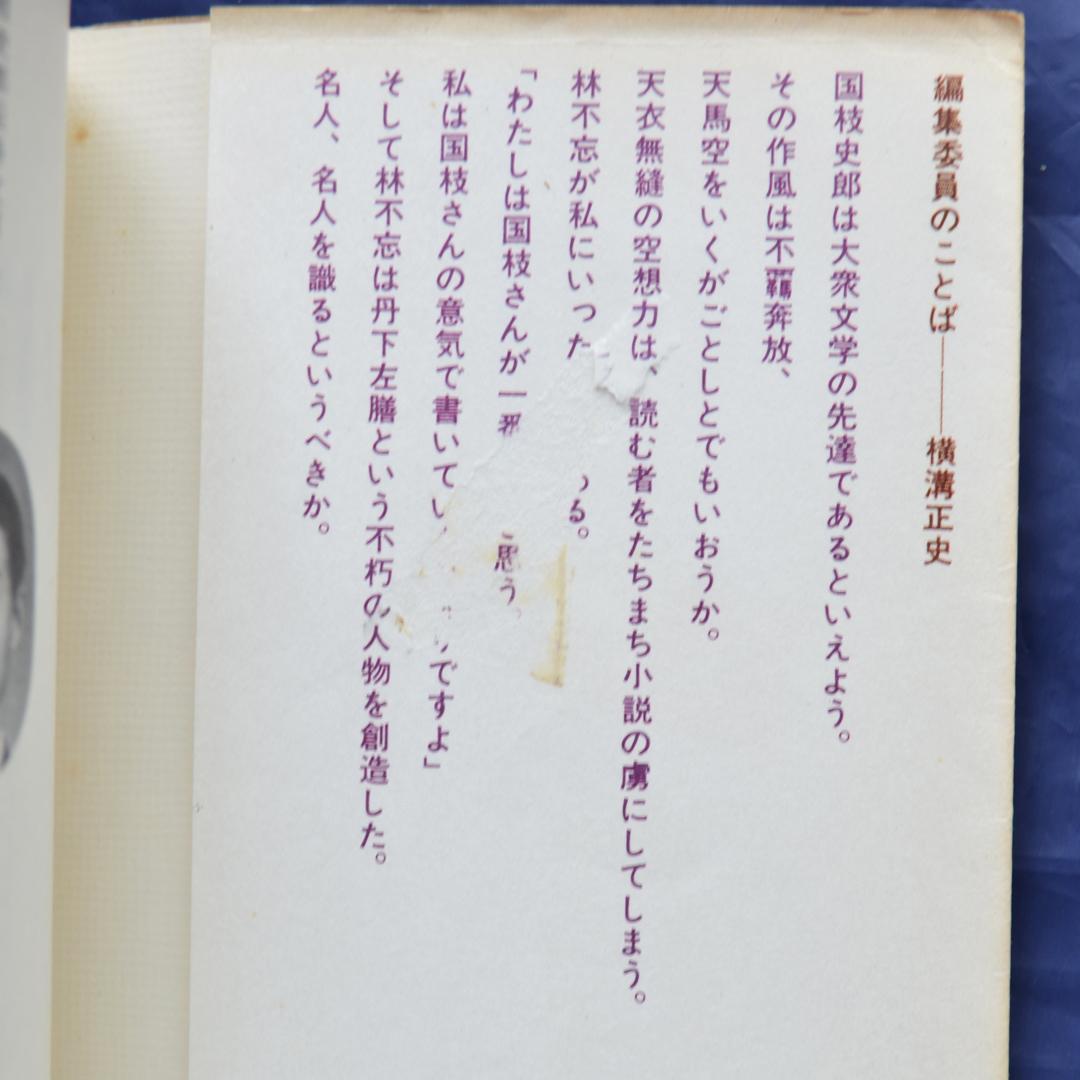 編集委員のことば――横溝正史
国枝史郎は大衆文学の先達であるといえよう。
その作風は不羈奔放、
天馬空をいくがごとしとでもいおうか。
天衣無縫の空想力は、読む者をたちまち小説の虜にしてしまう。
林不忘が私にいった る。
「わたしは国枝さんが一 思う。
私は国枝さんの意気で書いてい ですよ」
そして林不忘は丹下左膳という不朽の人物を創造した。
名人、名人を識るというべきか。